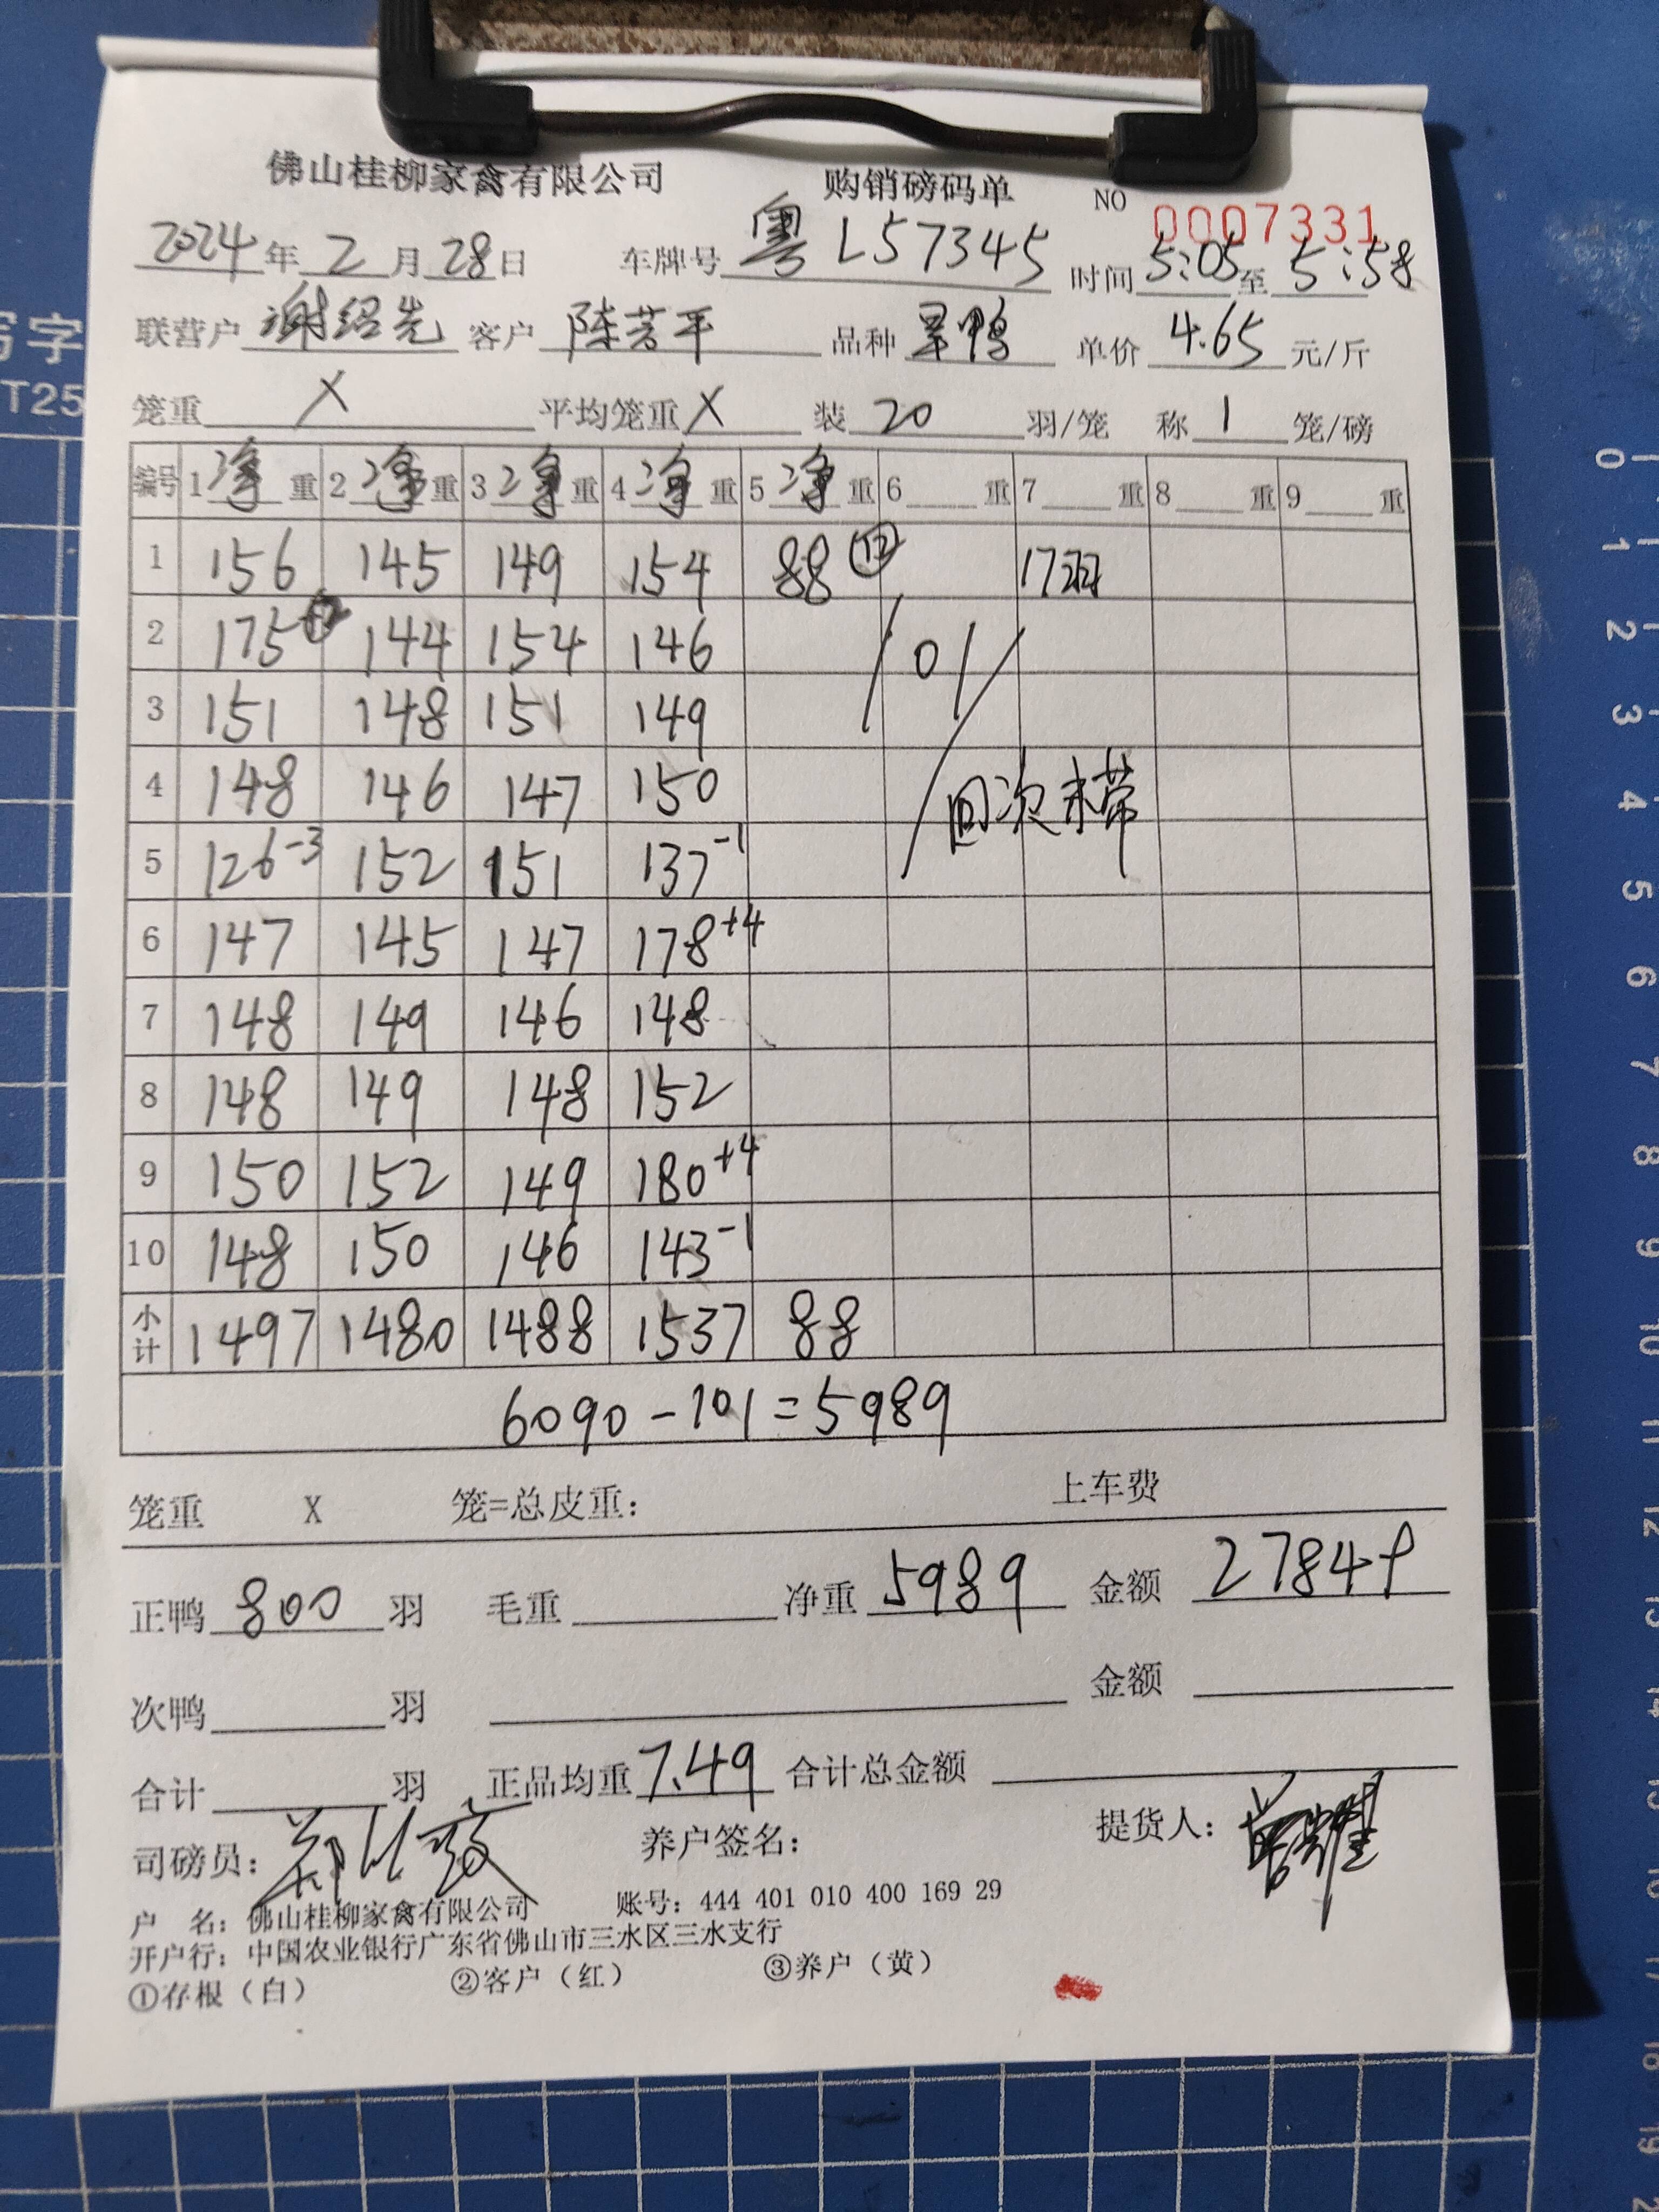 佛山桂柳家禽有限公司 购销磅码单 NO 0007331
2024年2月28日 车牌号 粤L57345 时间5:05至5:58
联营户 谢绍先 客户 陈芳平 品种 旱鸭 单价 4.65 元/斤
笼重 X 平均笼重 X 装 20 羽/笼 称 1 笼/磅
编号 1净重 2净重 3净重 4净重 5净重 6重 7重 8重 9重
1 156 145 149 154 88 ⑫ 17羽
2 175 144 154 146 101
3 151 148 151 149
4 148 146 147 150 回次未带
5 126-3 152 151 137-1
6 147 145 147 178+4
7 148 149 146 148
8 148 149 148 152
9 150 152 149 180+4
10 148 150 146 143-1
小计 1497 1480 1488 1537 88
6090-101=5989
笼重 X 笼=总皮重: 上车费
正鸭 800 羽 毛重 净重 5989 金额 27849
次鸭 羽 金额
合计 羽 正品均重 7.49 合计总金额
司磅员: 养户签名: 提货人:
户 名: 佛山桂柳家禽有限公司 账号: 444 401 010 400 169 29
开户行: 中国农业银行广东省佛山市三水区三水支行
①存根(白) ②客户(红) ③养户(黄)
写字
T25
0
1
2
3
4
5
6
7
8
9
10
11
12
13
14
15
16
17
18
19